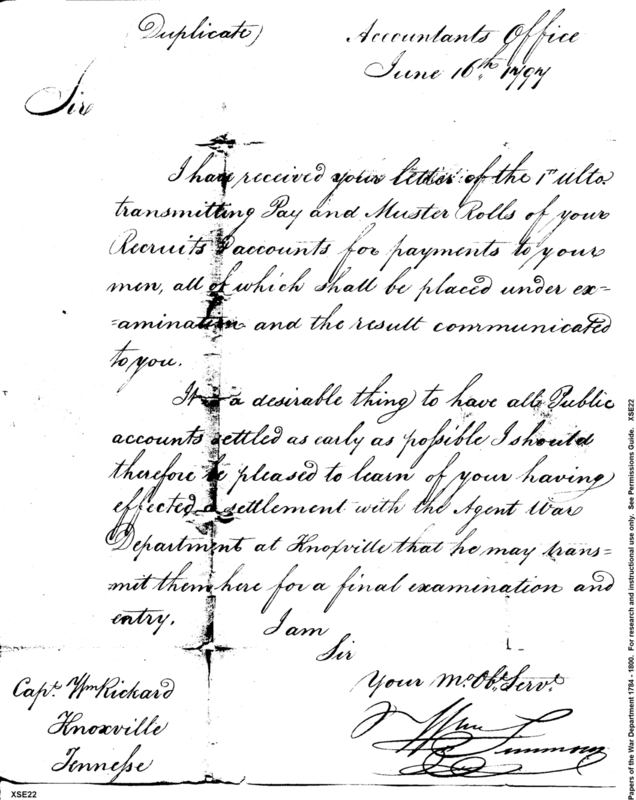 (Duplicate)
Accountants Office
June 16th 1797
Sir
I have received your letter of the 1st ulto.
transmitting Pay and Muster Rolls of your
Recruits & accounts for payments to your
men, all of which shall be placed under ex=
=amination and the result communicated
to you.
It is a desirable thing to have all Public
accounts settled as early as possible I should
therefore be pleased to learn of your having
effected a settlement with the Agent War
Department at Knoxville that he may trans=
mit them here for a final examination and
entry.
I am
Sir
Your Mo. Obt. Servt.
Wm Simmons
Capt. Wm Rickard
Knoxville
Tennesse
XSE22
Papers of the War Department 1784 - 1800. For research and instructional use only. See Permissions Guide. XSE22